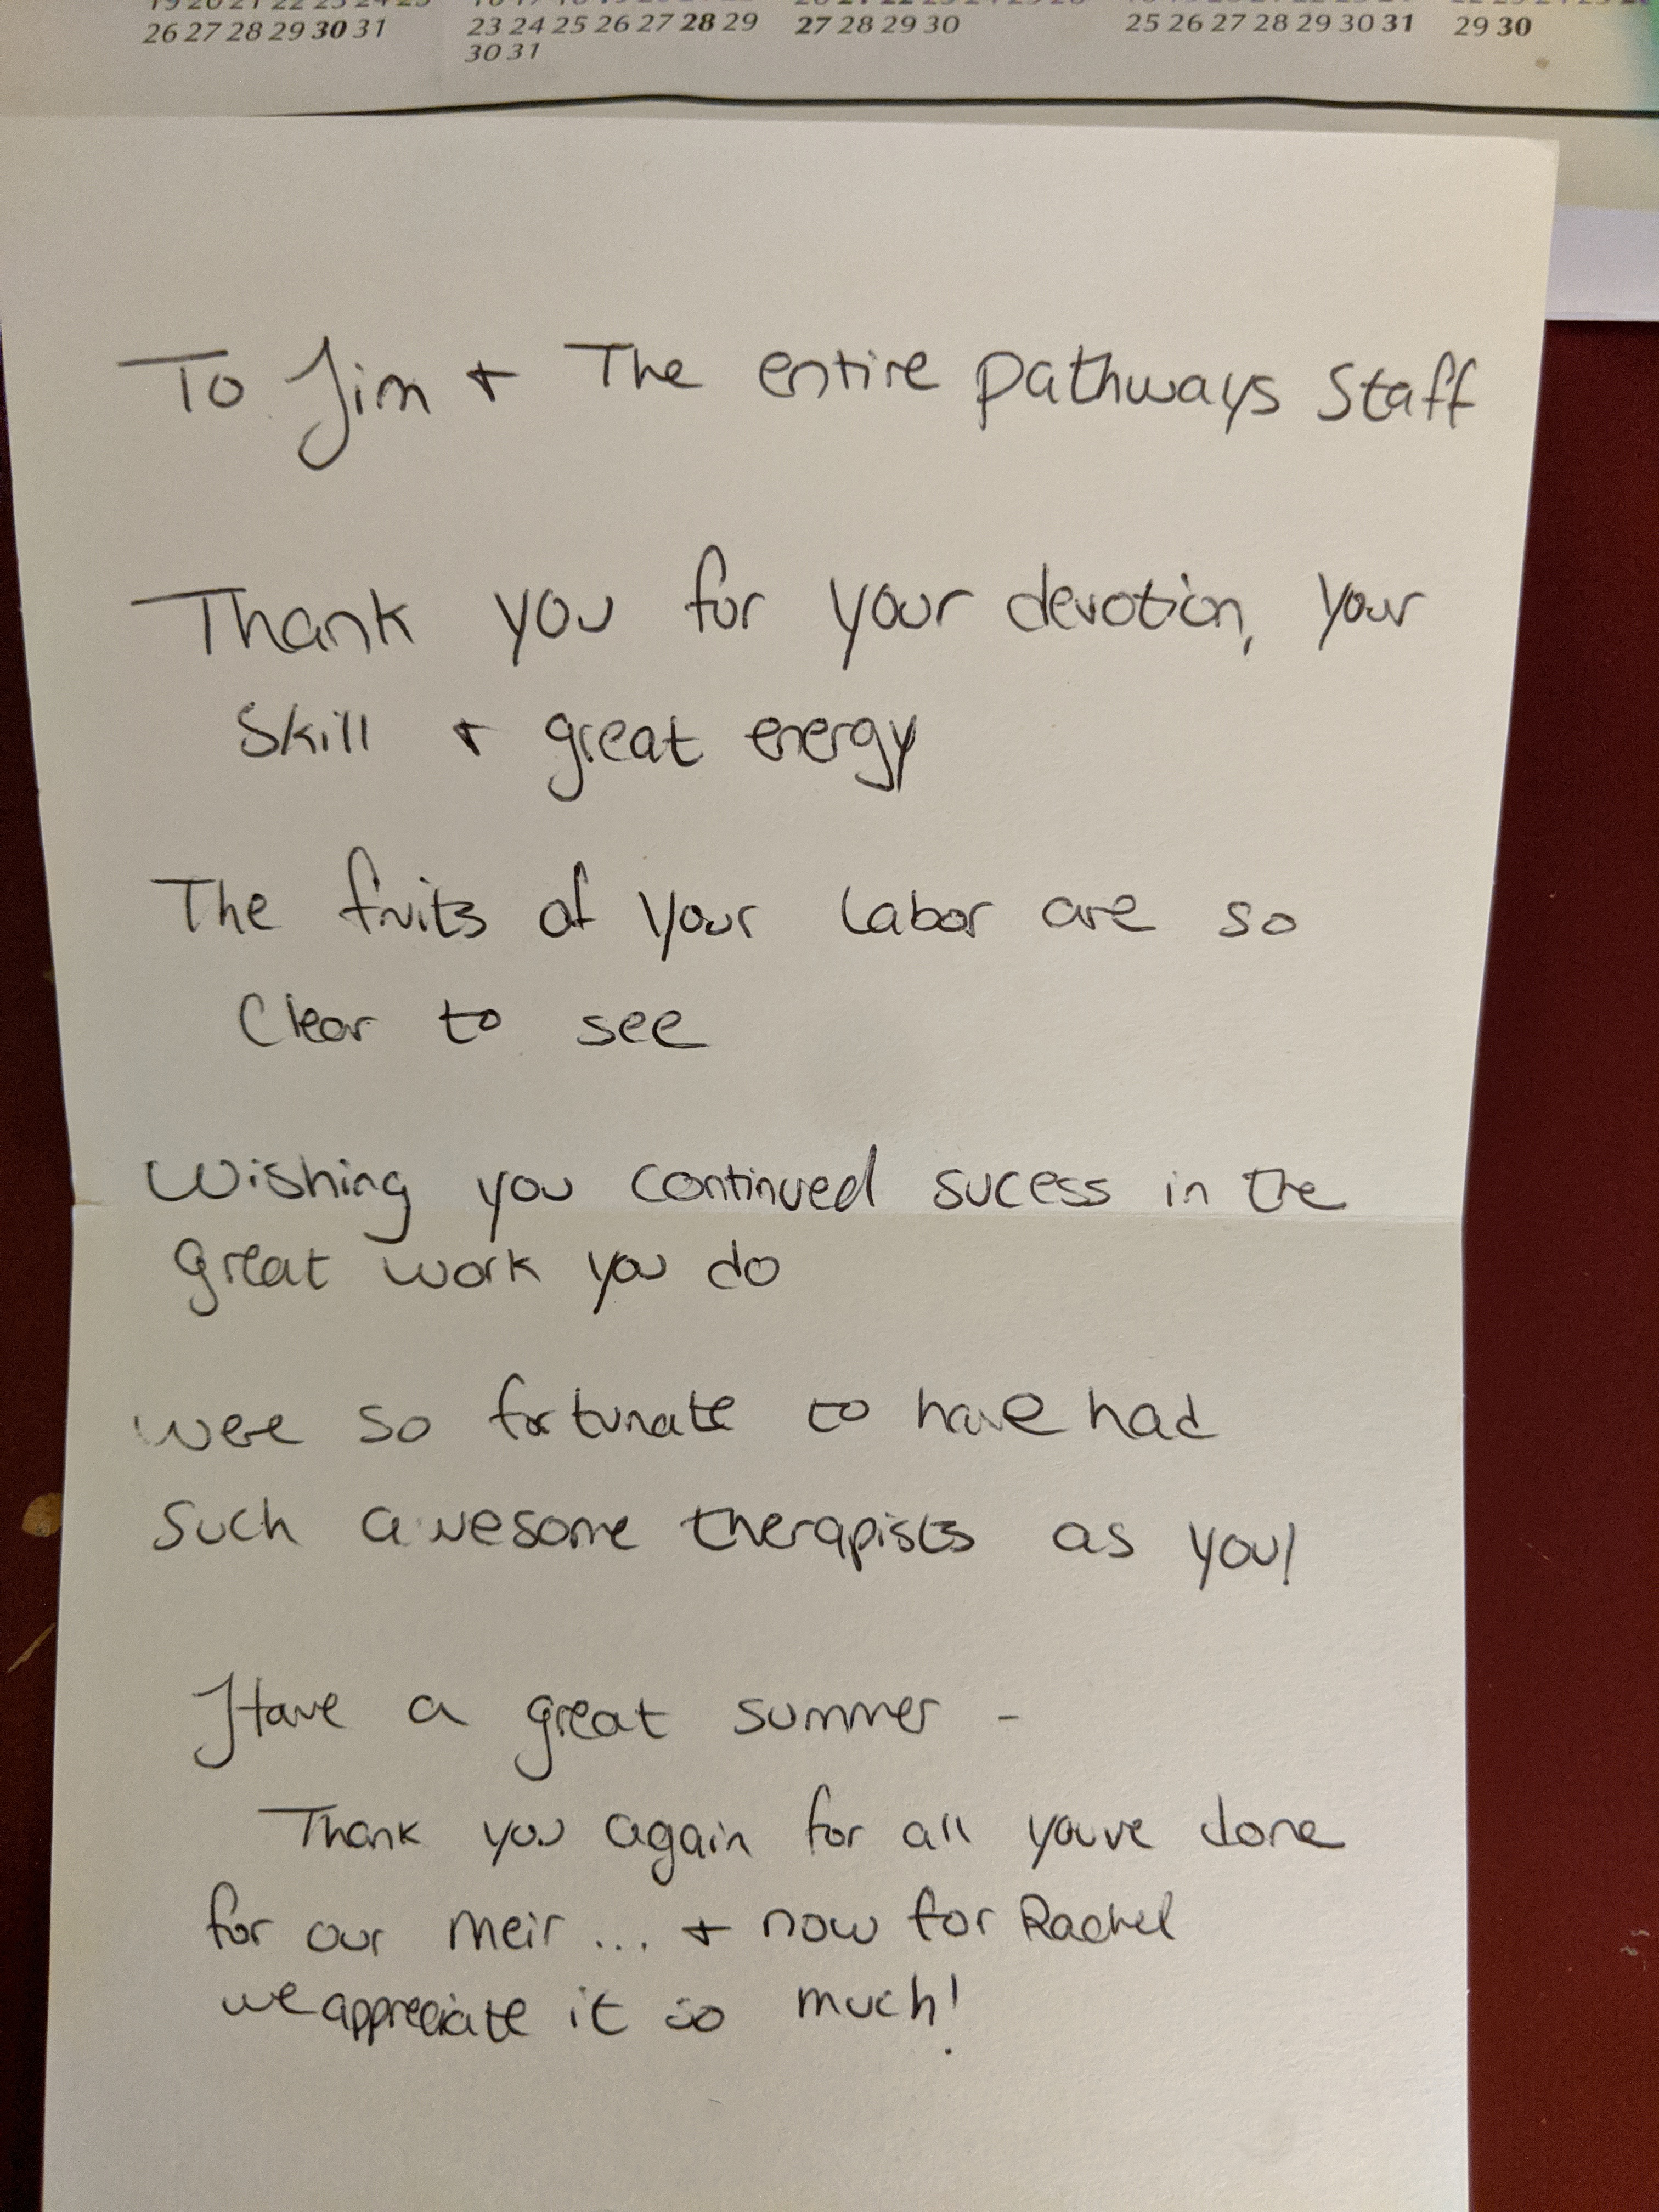 26 27 28 29 30 31
23 24 25 26 27 28 29
30 31
27 28 29 30
25 26 27 28 29 30 31
29 30
To Jim + The entire pathways Staff
Thank you for your devotion, your
Skill + great energy
The fruits of your labor are so
Clear to see
Wishing you continued sucess in the
great work you do
were so fortunate to have had
Such awesome therapists as you!
Have a great summer -
Thank you again for all youve done
for our meir... + now for Rachel
we appreciate it so much!